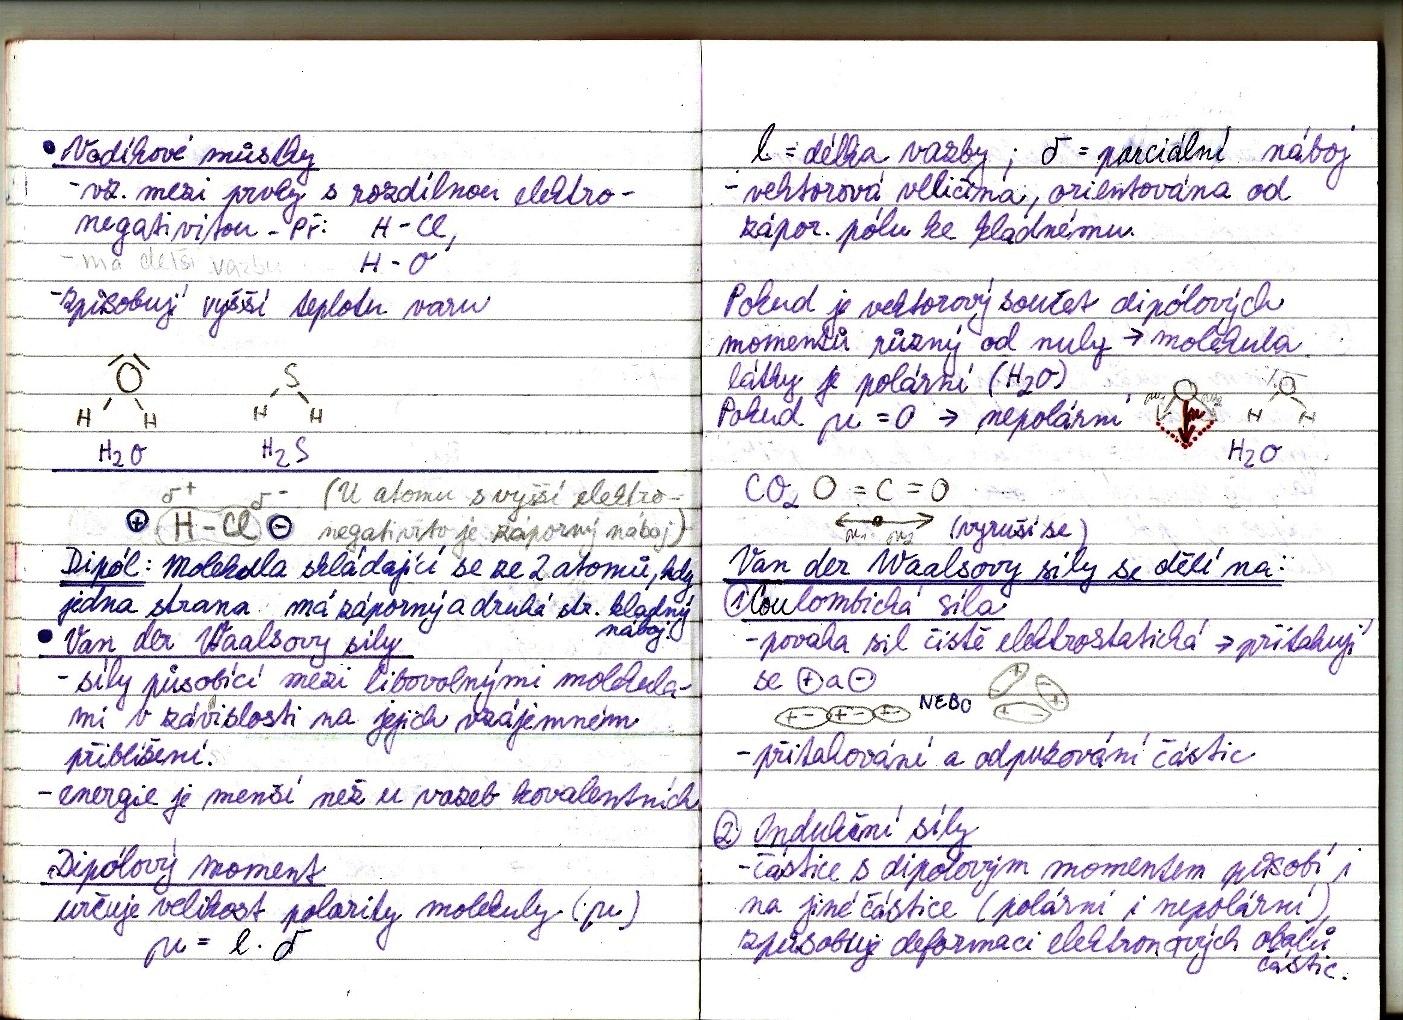 • Vodíkové můstky
- vz. mezi prvky s rozdílnou elektro-
negativitou - Př: H - Cl,
- má delší vazbu H - O
- způsobují vyšší teplotu varu
O
H H
H₂O
S
H H
H₂S
δ⁺ δ⁻ (U atomu s vyšší elektro-
⊕ H - Cl ⊖ negativito je záporný náboj)
Dipól: Molekula skládající se ze 2 atomů, kdy
jedna strana má záporný a druhá str. kladný
náboj.
• Van der Waalsovy síly
- síly působící mezi libovolnými molekula-
mi v závislosti na jejich vzájemném
přiblížení.
- energie je menší než u vazeb kovalentních
Dipólový moment
určuje velikost polarity molekuly (μ)
μ = l · δ
l = délka vazby ; δ = parciální náboj
- vektorová veličina, orientována od
zápor. pólu ke kladnému.
Pokud je vektorový součet dipólových
momentů různý od nuly → molekula
látky je polární (H₂O)
Pokud μ = 0 → nepolární
μ₁ μ₂
μ
O
H H
H₂O
CO₂ O = C = O
μ₁ μ₂ (vyruší se)
Van der Waalsovy síly se dělí na:
① Coulombická síla
- povaha sil čistě elektrostatická → přitahují
se ⊕ a ⊖
+ - + - + - NEBO + - + - + -
- přitahování a odpuzování částic
② Indukční síly
- částice s dipólovým momentem působí i
na jiné částice (polární i nepolární),
způsobuje deformaci elektronových obalů
částic.